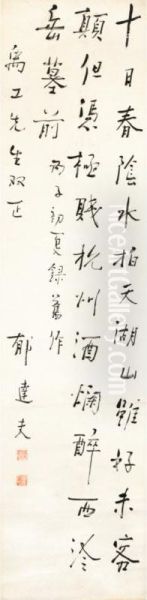 十日春陰水拍天湖山雖好未容
顛但憑極賤杭州酒爛醉西泠
岳墓前
丙子初夏録舊作
禹工先生双正
郁達夫